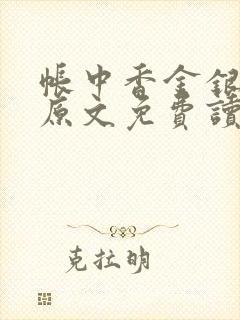 帳中香金銀
原文免費讀
克拉明